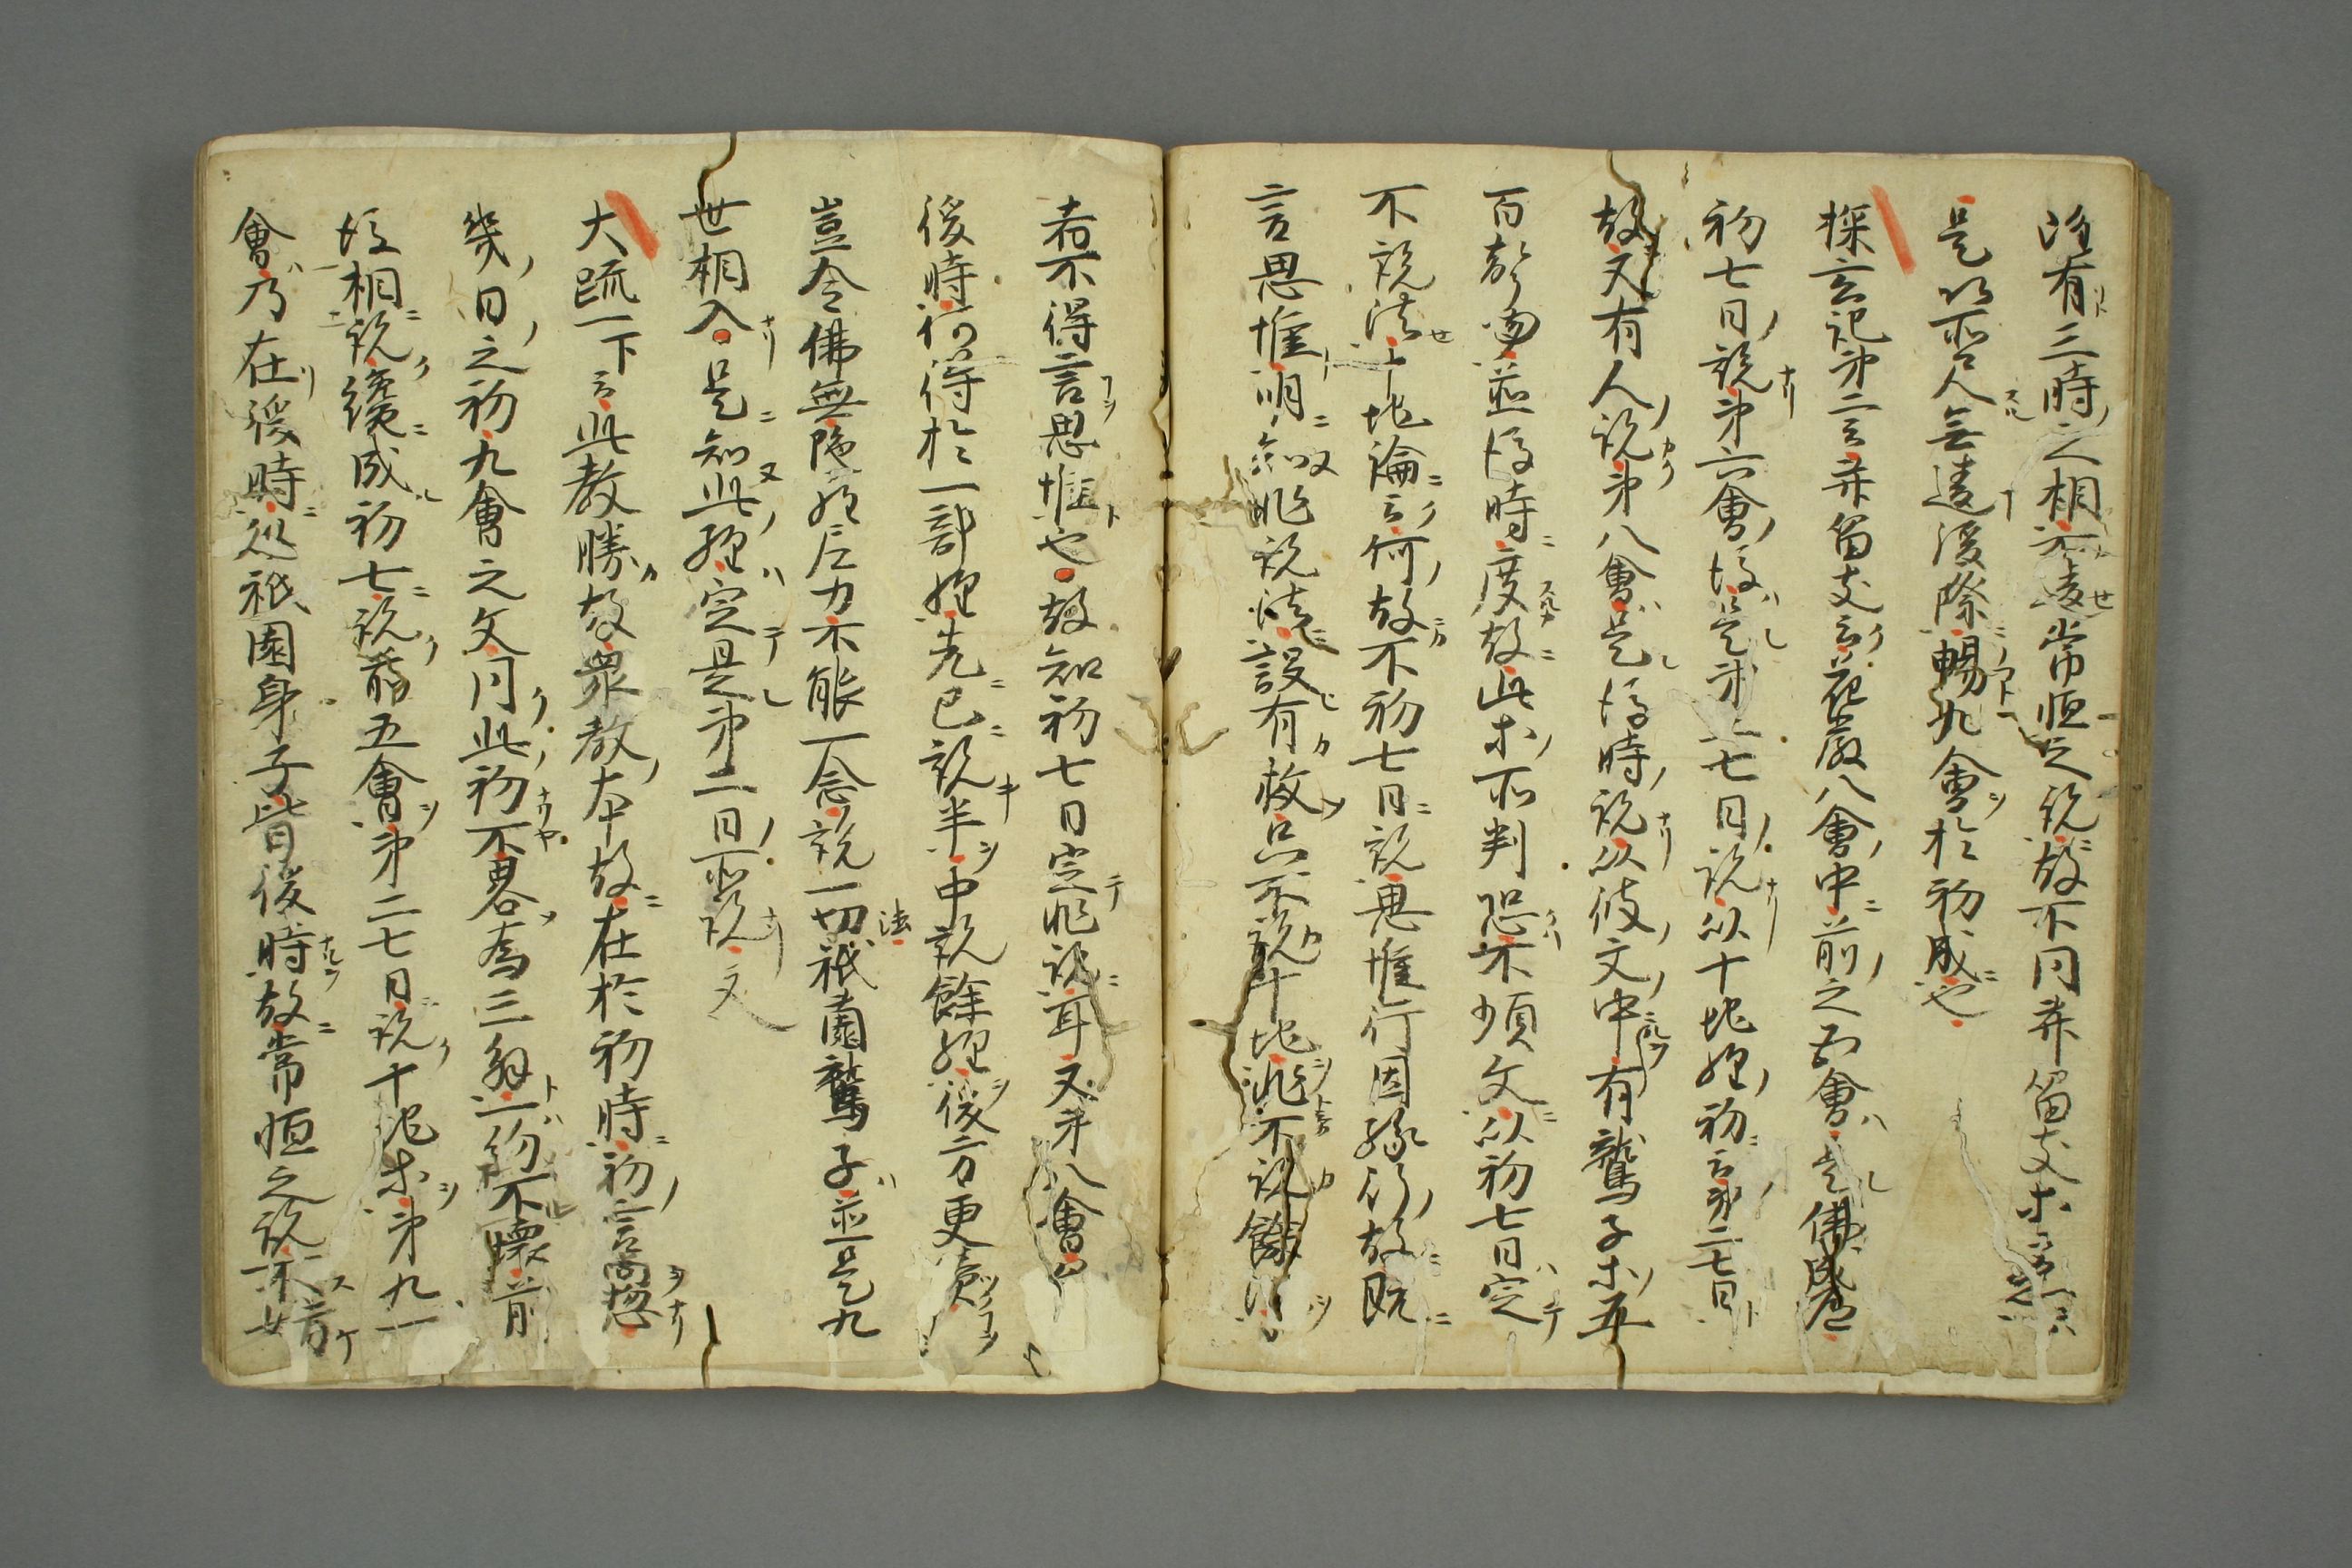 雖有三時之相不凌常恒之説故不同菩留支等
是以不名人無遠後際暢九會於初成也
探玄記第二云菩留支云花嚴八會中前之五會是佛成道
初七日説第六會後是第二七日説以十地經初云第二七日
故又有人説第八會是後時説以彼文中有鶖子等五
百聲聞並後時度故此等所判恐不順文以初七日定
不説法十地論云何故不初七日説思惟行因縁行故既
言思惟明知非説法設有救只不説十地非不説餘法
者不得言思惟也故知初七日定非説耳又第八會
後時何得於一部經先已説半中説餘經後方更續
豈令佛無陀羅尼力不能一念説一切法祇園鶖子並是九
世相入是知此經定是第二日所説文
大疏一下云此教勝故衆教本故在於初時初言尚揔
幾日之初九會之文同此初不畧爲三釋一約不壞前
後相説纔成初七説前五會第二七日説十地等第九一
會乃在後時以祇園身子皆後時故常恒之説不妨